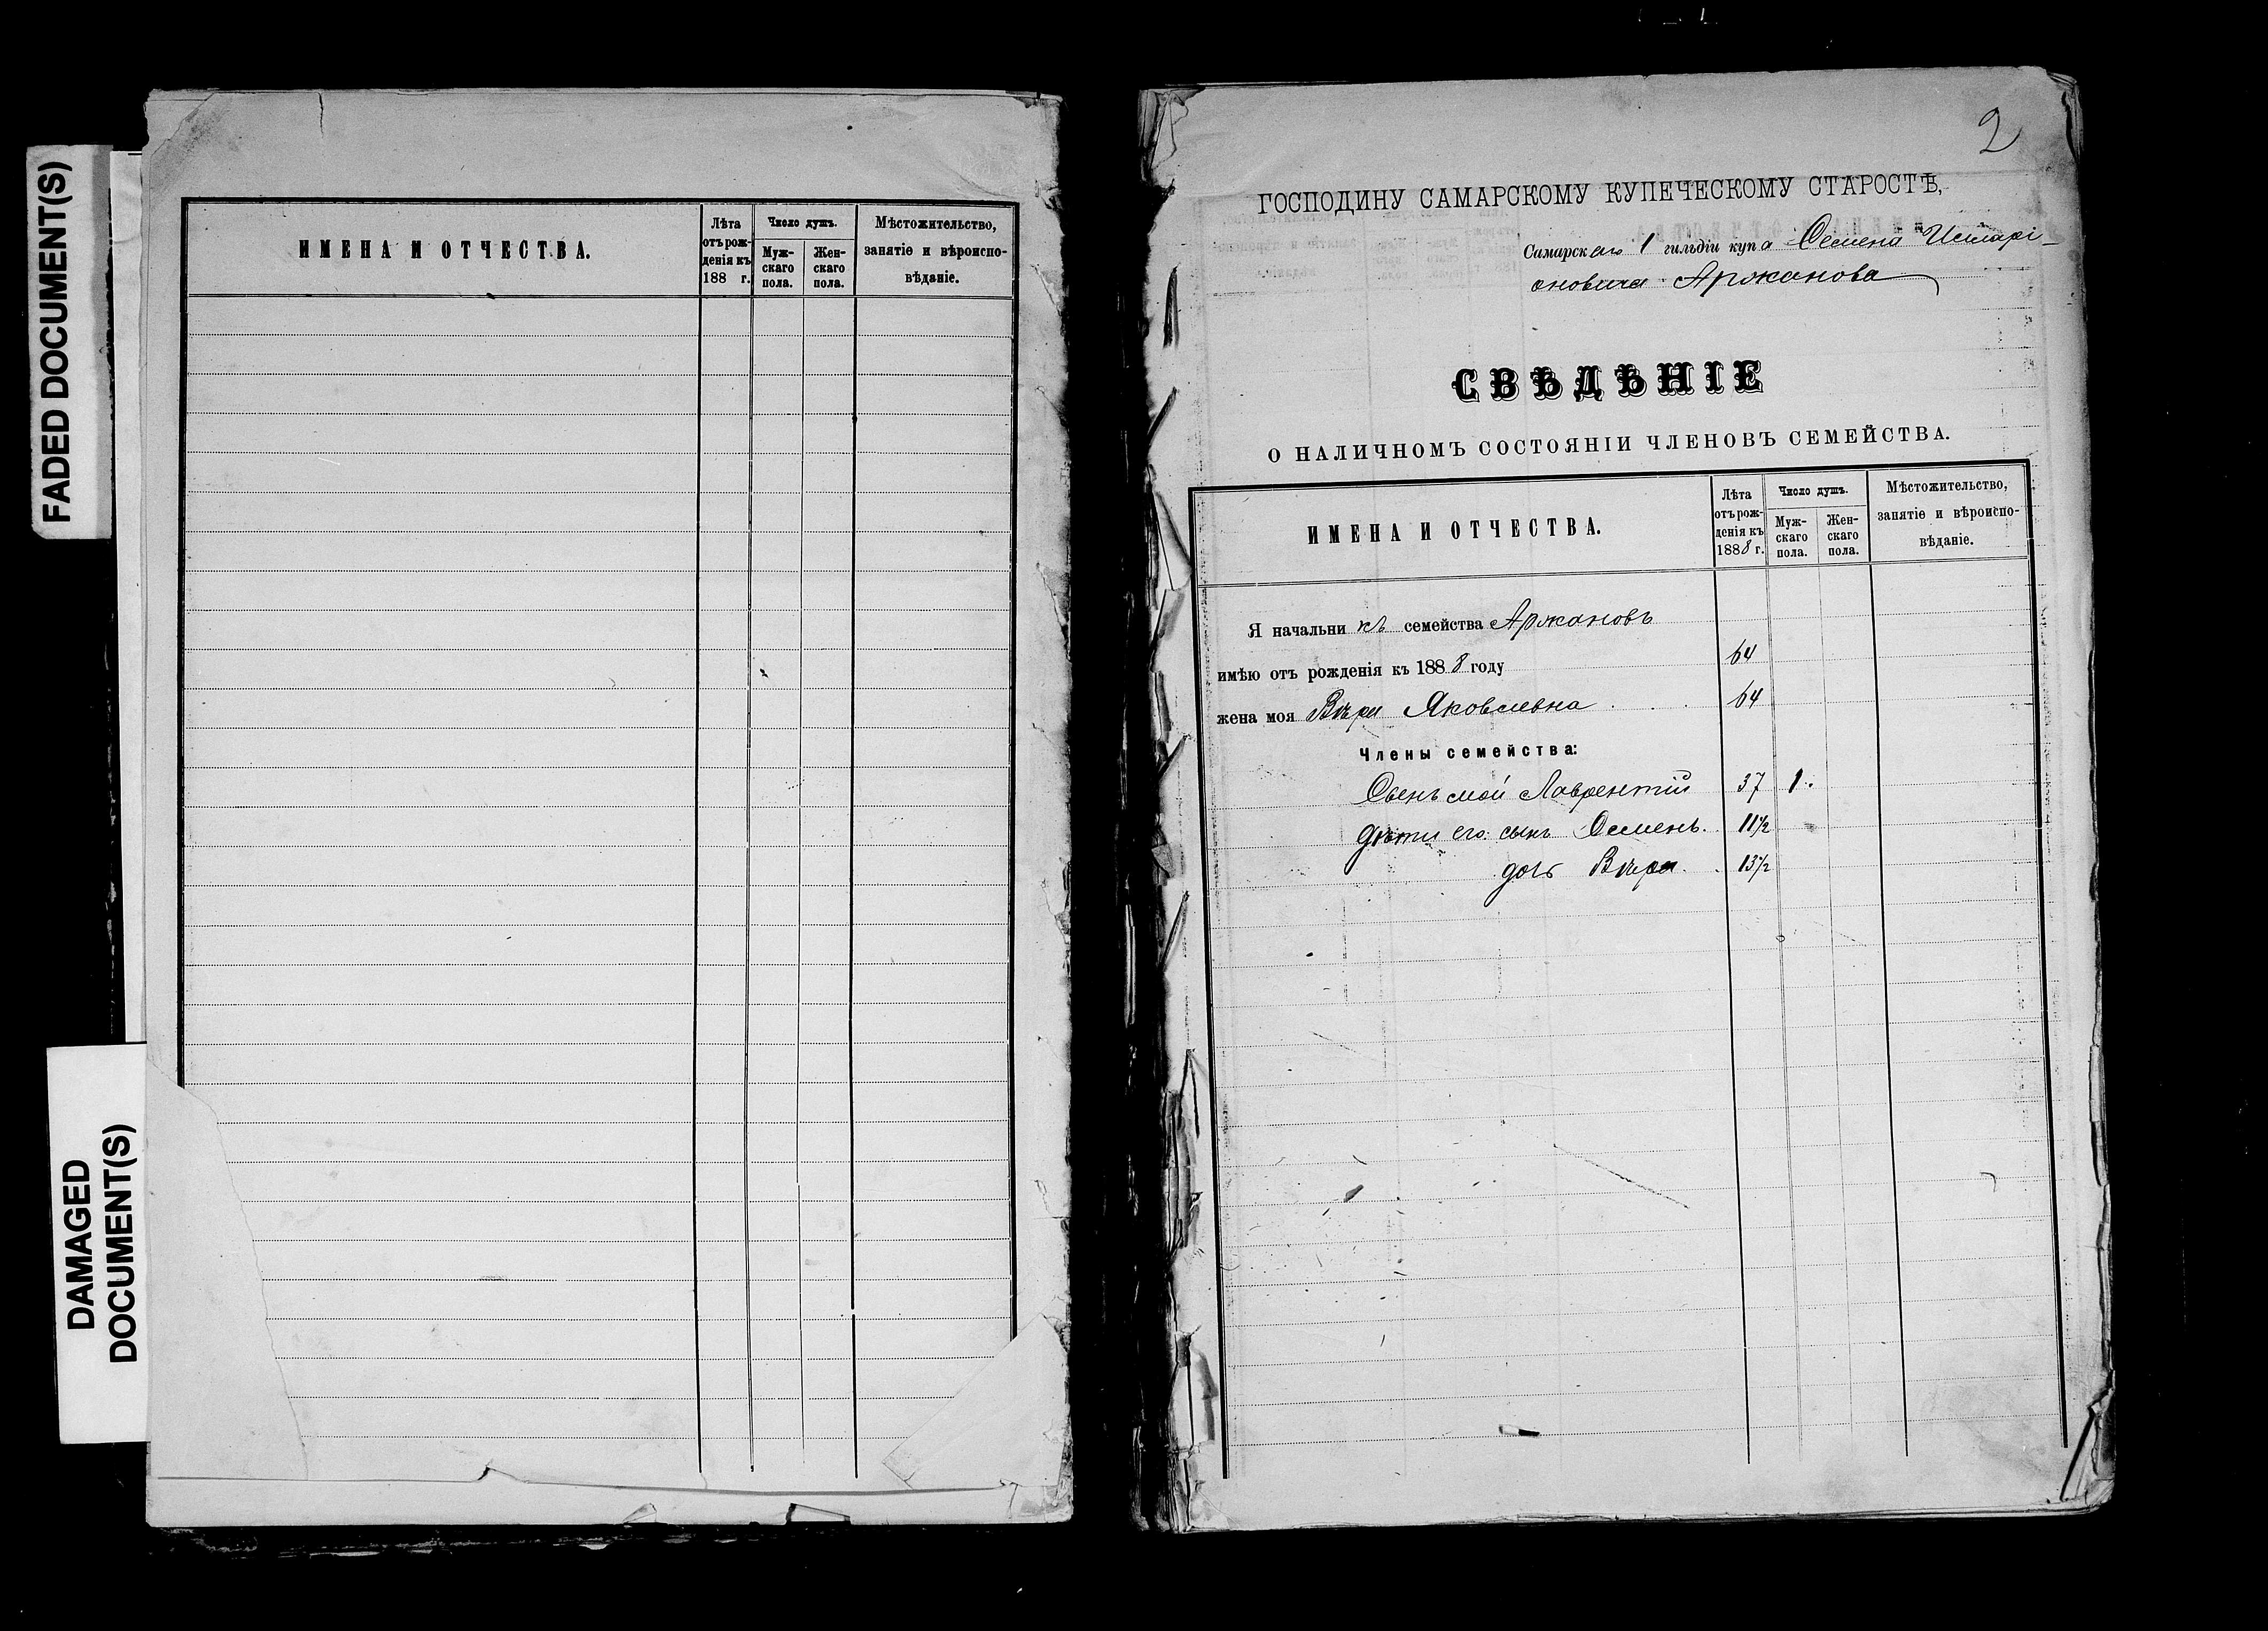 FADED DOCUMENT(S)
DAMAGED
DOCUMENT(S)
ИМЕНА И ОТЧЕСТВА.
Лѣта
отъ рож-
денія къ
188 г.
Число душъ.
Муж-
скаго
пола.
Жен-
скаго
пола.
Мѣстожительство,
занятіе и вѣроиспо-
вѣданіе.
2
ГОСПОДИНУ САМАРСКОМУ КУПЕЧЕСКОМУ СТАРОСТѢ,
Самарскаго 1 гильдіи купа Семена Исмарі-
оновича Аржанова
СВѢДѢНІЕ
О НАЛИЧНОМЪ СОСТОЯНІИ ЧЛЕНОВЪ СЕМЕЙСТВА.
ИМЕНА И ОТЧЕСТВА.
Лѣта
отъ рож-
денія къ
1888 г.
Число душъ.
Муж-
скаго
пола.
Жен-
скаго
пола.
Мѣстожительство,
занятіе и вѣроиспо-
вѣданіе.
Я начальникъ семейства Аржановъ
имѣю отъ рожденія къ 1888 году 64
жена моя Вѣра Яковлевна 64
Члены семейства:
Сынъ мой Лаврентій 37 1.
дѣти его: сынъ Семенъ 11½
дочь Вѣра 13½